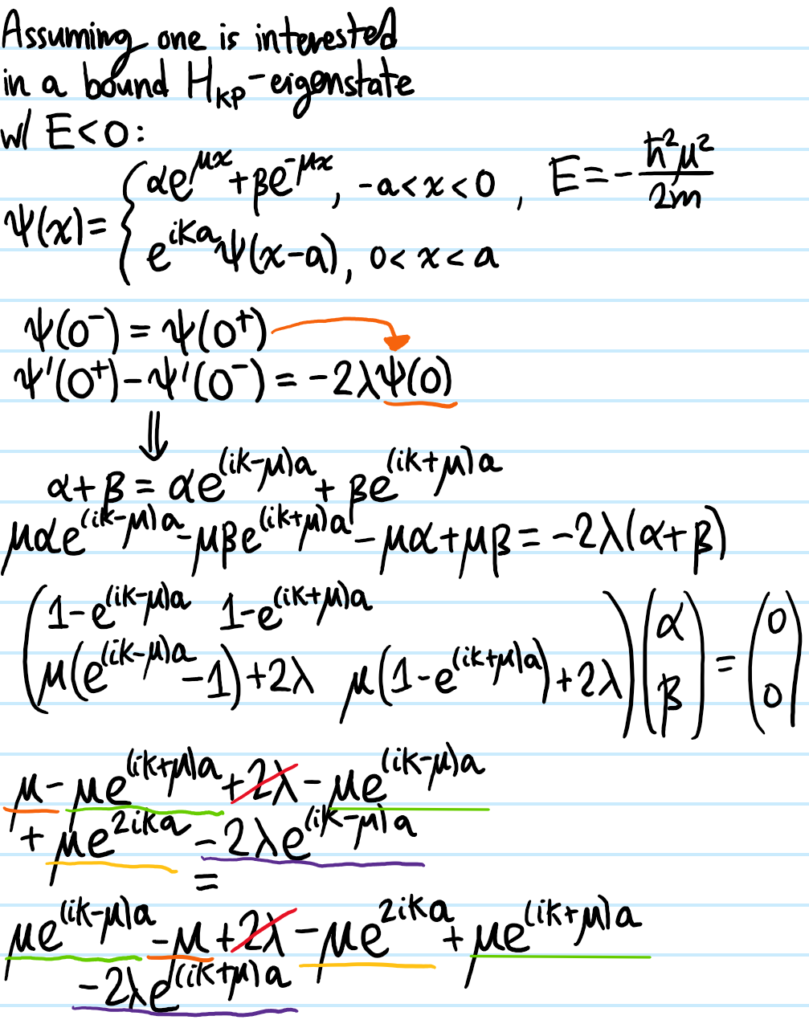 Assuming one is interested
in a bound H_KP-eigenstate
w/ E<0:
ψ(x)={αe^{μx}+βe^{-μx}, -a<x<0, E=-ħ²μ²/2m
e^{iKa}ψ(x-a), 0<x<a
ψ(0⁻)=ψ(0⁺)
ψ'(0⁺)-ψ'(0⁻)=-2λψ(0)
⇓
α+β=αe^{(ik-μ)a}+βe^{(ik+μ)a}
μαe^{(ik-μ)a}-μβe^{(ik+μ)a}-μα+μβ=-2λ(α+β)
(1-e^{(ik-μ)a} 1-e^{(ik+μ)a}
μ(e^{(ik-μ)a}-1)+2λ μ(1-e^{(ik+μ)a})+2λ)(α β)=(0 0)
μ-μe^{(ik+μ)a}+2λ-μe^{(ik-μ)a}
+μe^{2ika}-2λe^{(ik-μ)a}
=
μe^{(ik-μ)a}-μ+2λ-μe^{2ika}+μe^{(ik+μ)a}
-2λe^{(ik+μ)a}